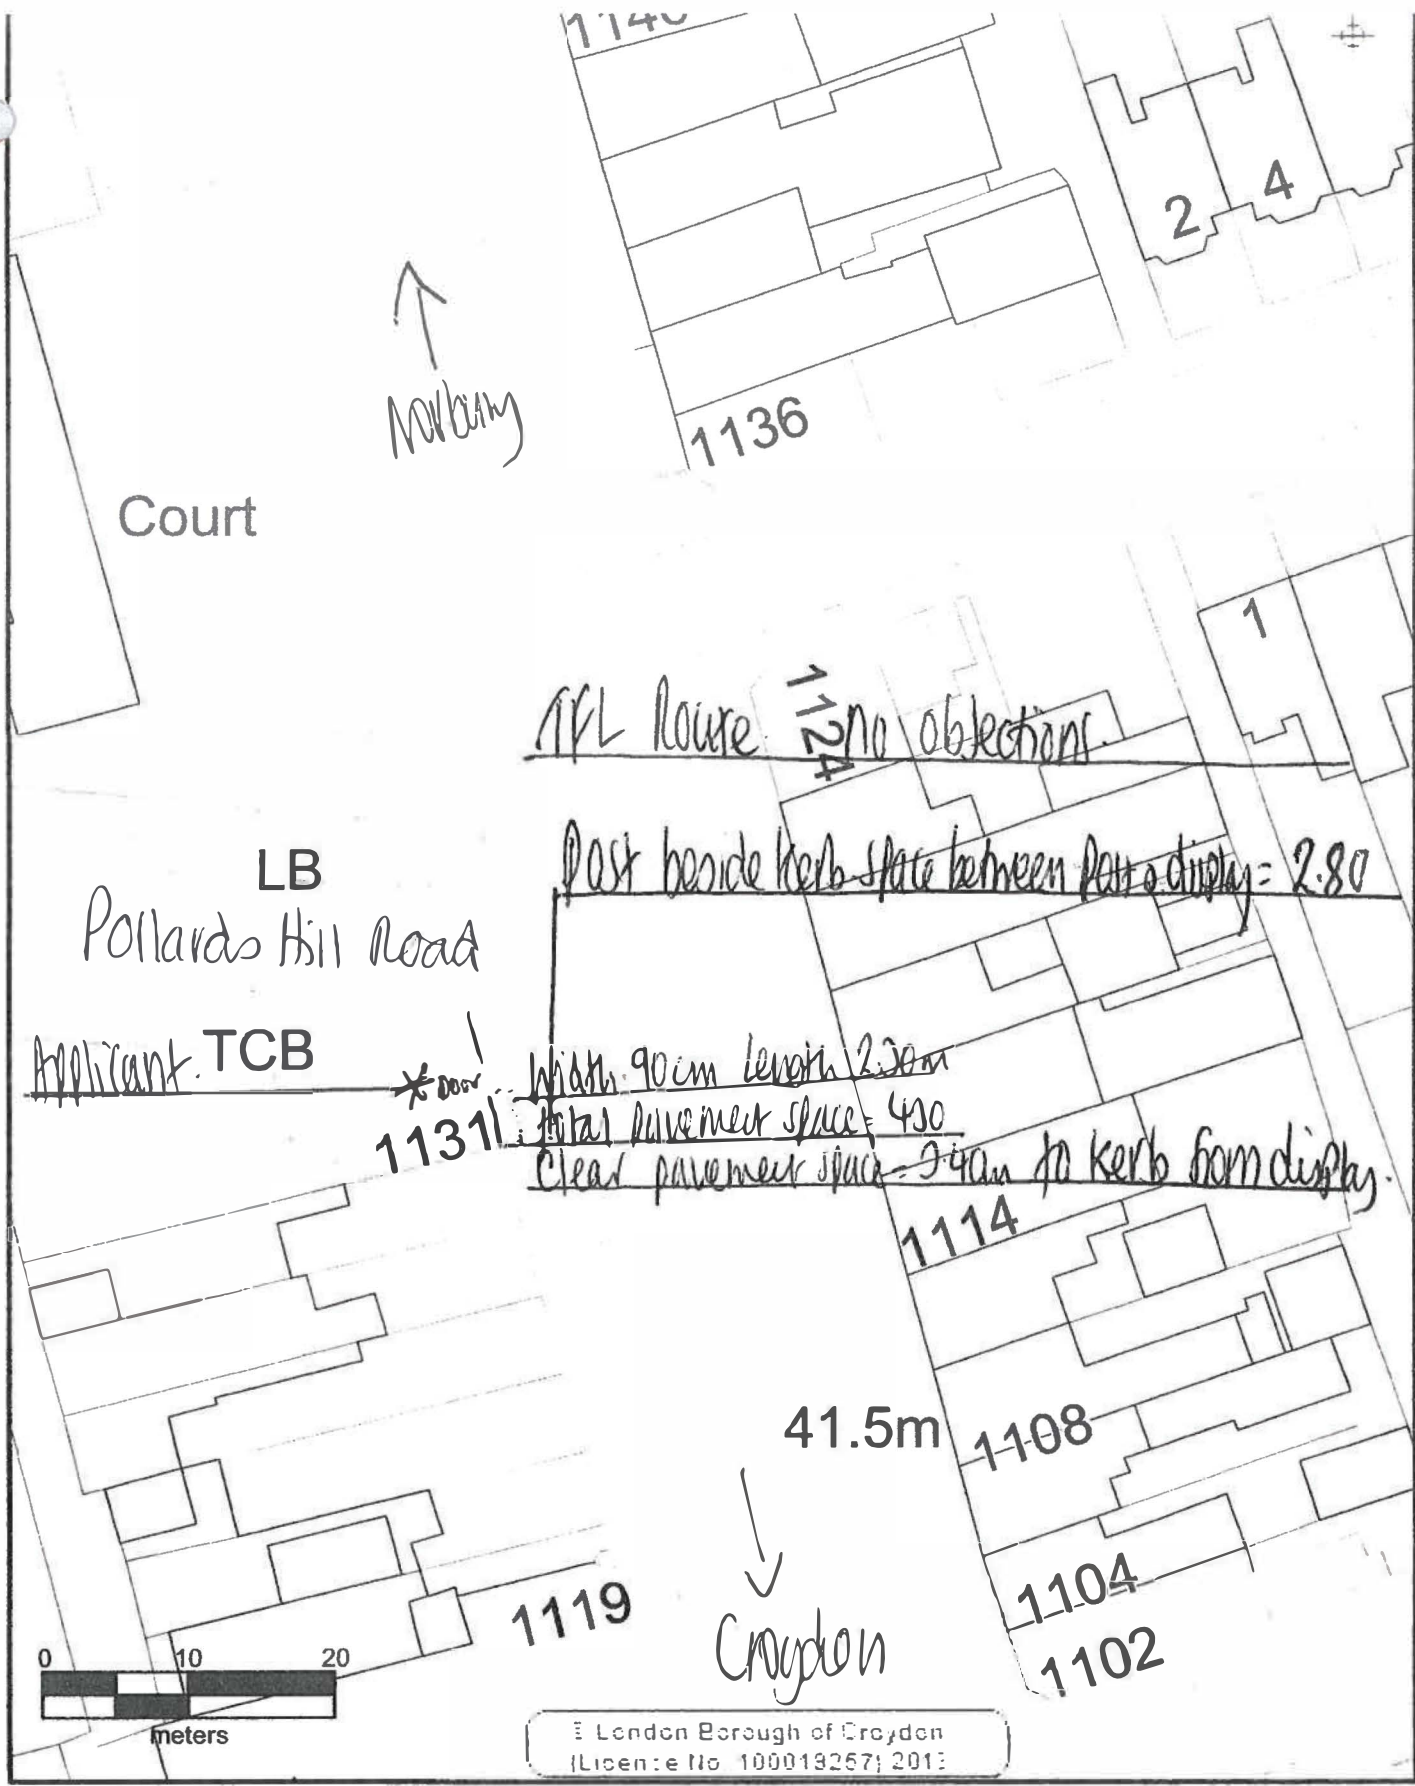 1140
2
4
Norbury
1136
Court
1
1124
TFL Route no objections.
Post beside Kerb space between Post & display = 2.80
LB
Pollards Hill Road
Applicant.
TCB
Door
Width 90cm Length 2.30m
1131
Total pavement space = 4.30
Clear pavement space = 3.40m to Kerb from display.
1114
41.5m
1108
1104
1119
Croydon
1102
0 10 20
meters
London Borough of Croydon
(Licence No. 100019257) 201